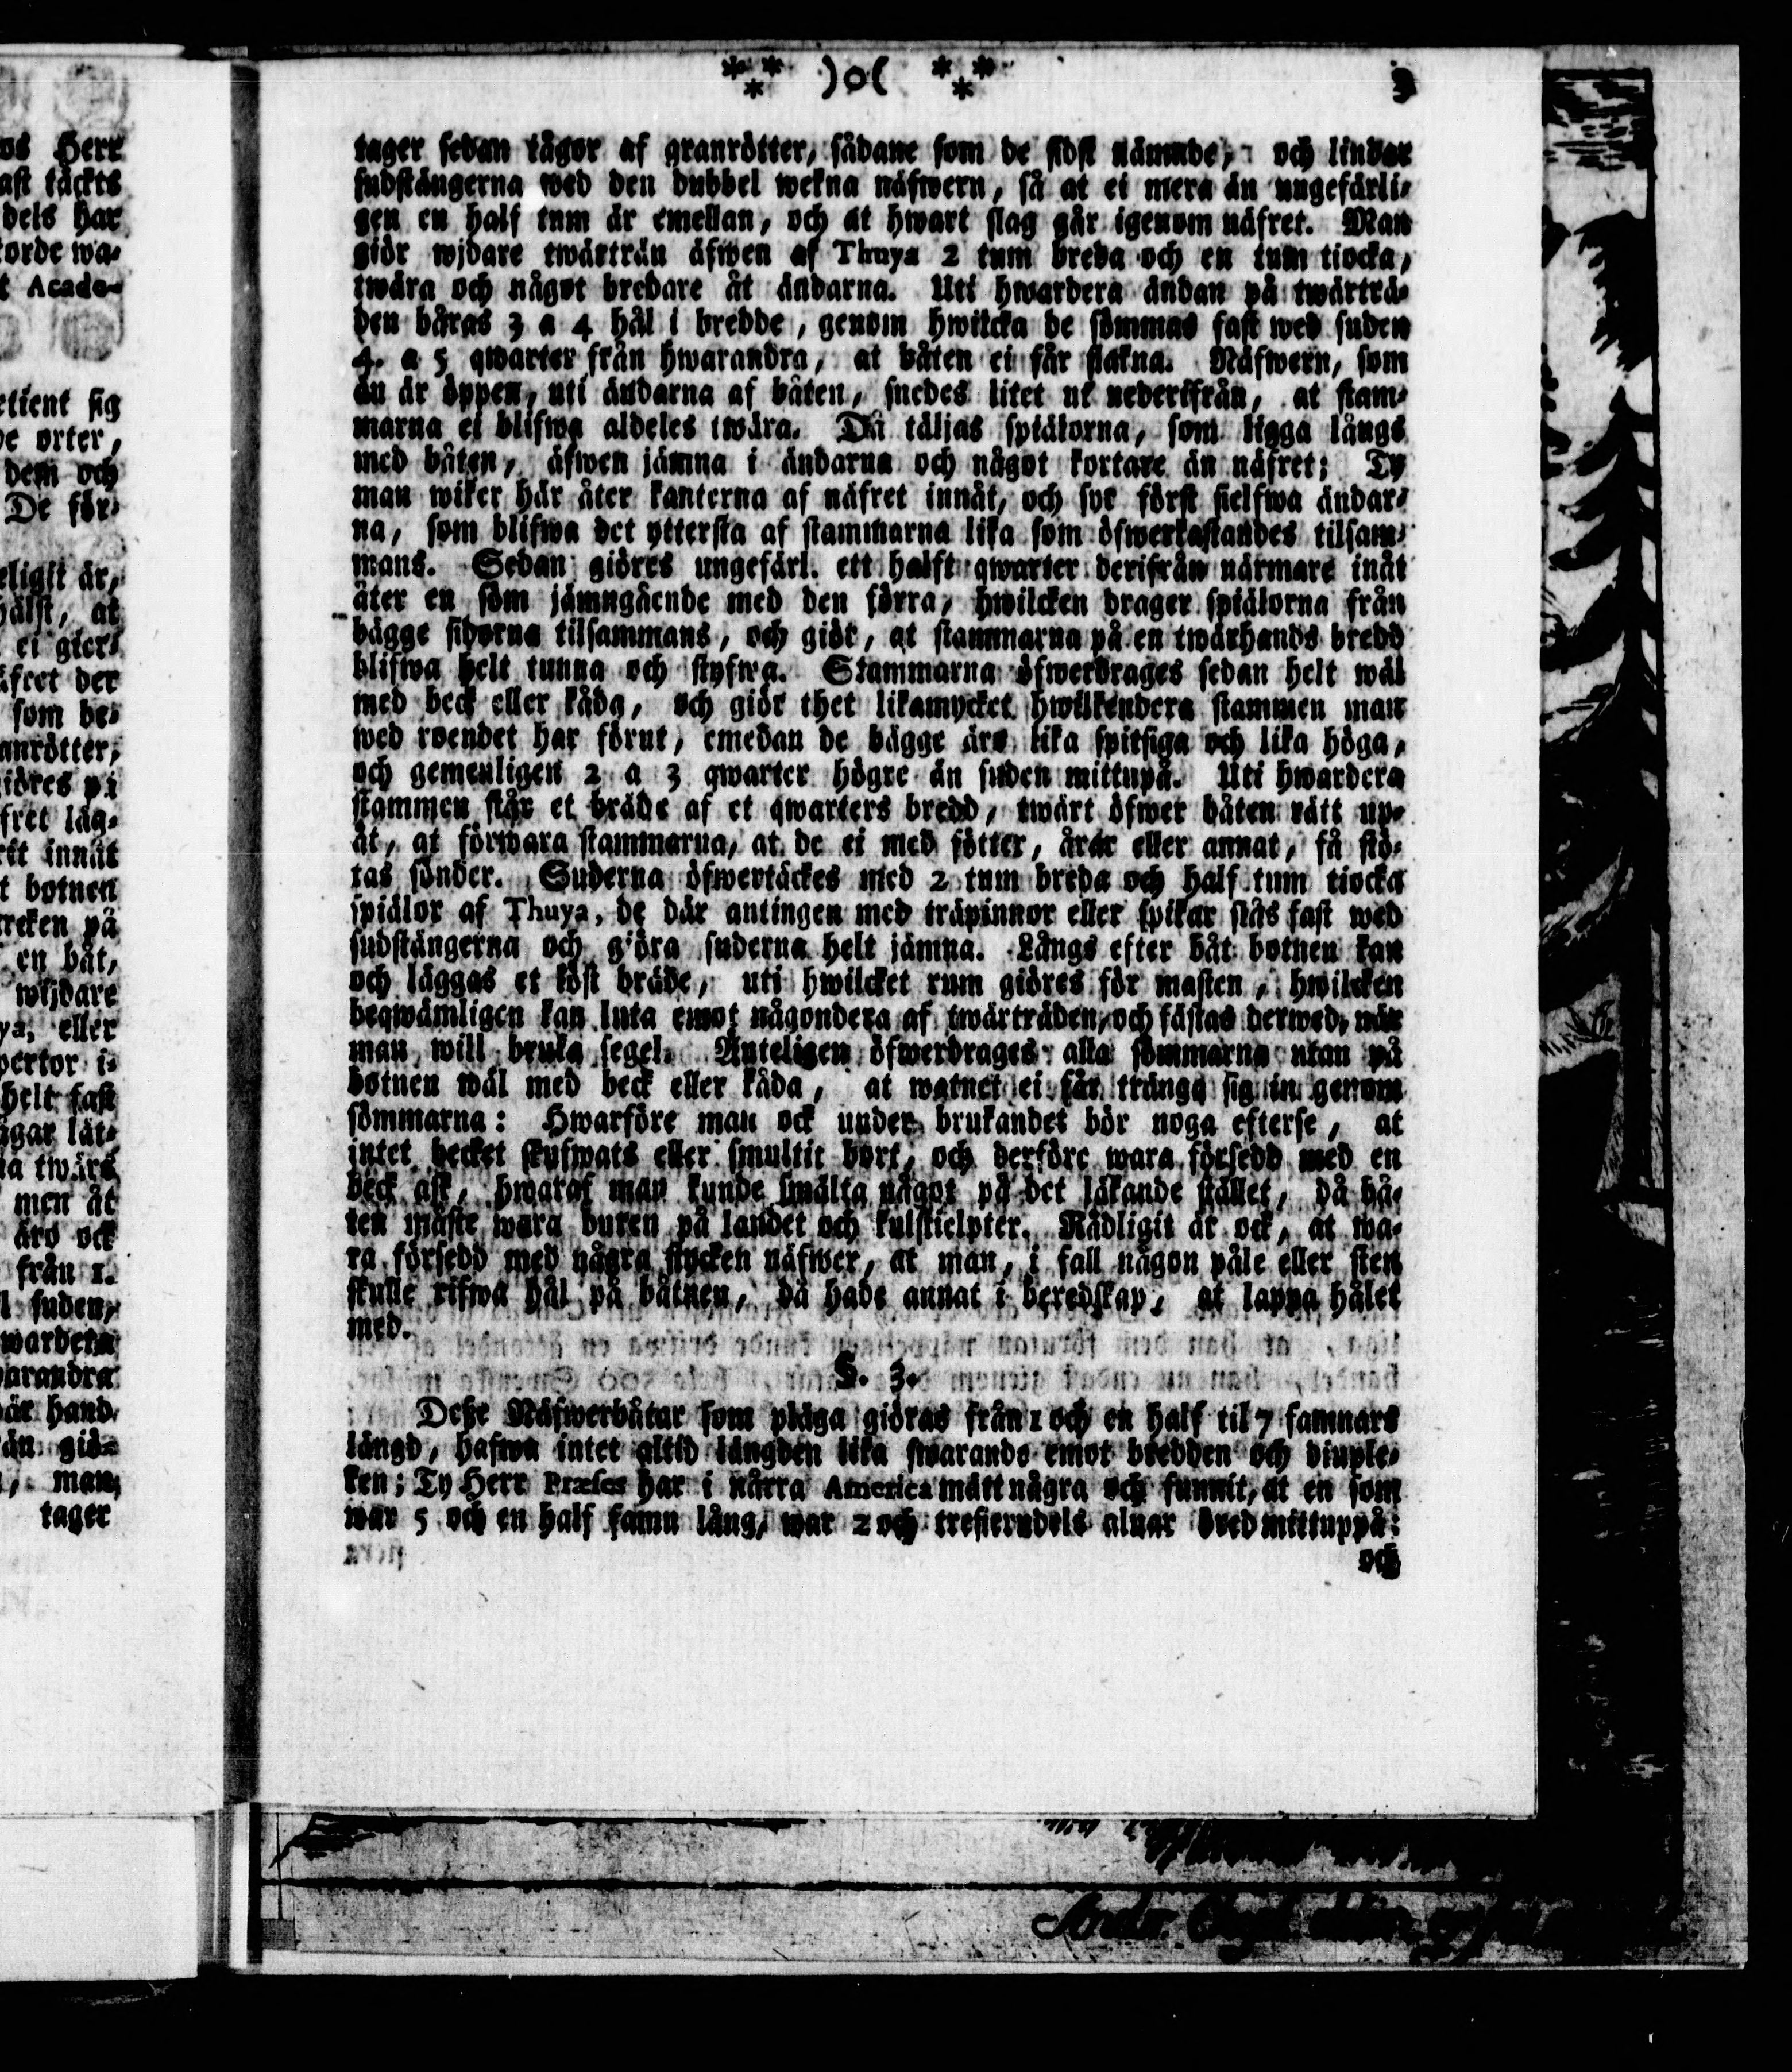 os Herr
ast täckts
dels har
orde wa-
t Acade-
etient sig
e orter,
dem och
De för-
eligit är,
hälst, at
ei gier-
äfret der
som be-
anrötter,
iöres på
fret läg-
rit innåt
t botnen
recken på
en båt,
wijdare
ya, eller
pertor i-
helt fast
ågar lät-
ia twärs
men åt
äro ock
från 1.
l suden,
warbera
warandra
där hand
än giö-
, man,
tager
)o( 3
tager sedan tågor af granrötter, sådane som de sidst nämnde, och lindar
sudstängerna wed den dubbel wekna näfwern, så at ei mera än ungefärli-
gen en half tum är emellan, och at hwart slag går igenom näfret. Man
giör wjdare twärträn äfwen af Thuya 2 tum breda och en tum tiocka,
twära och något bredare åt ändarna. Uti hwardera ändan på twärträ-
den båras 3 a 4 hål i bredde, genom hwilcka de sömmas fast wed suden
4. a 5 qwarter från hwarandra, at båten ei får slakna. Näfwern, som
än är öppen, uti ändarna af båten, snedes litet ut nedertfrån, at stam-
marna ei blifwa aldeles twära. Då täljas spiälorna, som ligga långs
med båten, äfwen jämna i ändarna och något kortare än näfret; Ty
man wiker här åter kanterna af näfret innåt, och syr först sielfwa ändar-
na, som blifwa det yttersta af stammarna lika som öfwerkastandes tilsam-
mans. Sedan giöres ungefärl. ett halft qwarter derifrån närmare inåt
åter en söm jämngående med den förra, hwilcken drager spiälorna från
bägge sidorna tilsammans, och giör, at stammarna på en twärhands bredd
blifwa helt tunna och styfwa. Stammarna öfwerdrages sedan helt wäl
med beck eller kåda, och giör thet likamycket hwilkendera stammen man
wed roendet har förut, emedan de bägge äro lika spitsiga och lika höga,
och gemenligen 2 a 3 qwarter högre än suden mittupå. Uti hwardera
stammen står et bräde af et qwarters bredd, twärt öfwer båten rätt up-
åt, at förwara stammarna, at de ei med fötter, åror eller annat, få stö-
tas sönder. Suderna öfwertäckes med 2 tum breda och half tum tiocka
spiälor af Thuya, de där antingen med träpinnor eller spikar slås fast wed
sudstängerna och giöra suderna helt jämna. Långs efter båt botnen kan
och läggas et löst bräde, uti hwilcket rum giöres för masten, hwilcken
beqwämligen kan luta emot någondera af twärträden, och fästas derwed, när
man will bruka segel. Anteligen öfwerdrages alla sömmarna utan på
botnen wäl med beck eller kåda, at watnet ei får tränga sig in genom
sömmarna: Hwarföre man ock under brukandet bör noga efterse, at
intet becket skufwats eller smultit bort, och derföre wara försedd med en
beck ask, hwaraf man kunde smälta något på det läkande stället, då bå-
ten måste wara buren på landet och kulstielpter. Rådligit är ock, at wa-
ra försedd med några stycken näfwer, at man, i fall någon påle eller sten
skulle rifwa hål på båtnen, då hade annat i beredskap, at lappa hålet
med.
§. 3.
Desze Näfwerbåtar som pläga giöras från 1 och en half til 7 famnars
längd, hafwa intet altid längden lika swarande emot bredden och diuple-
ken; Ty Herr Præses har i norra America mätt några och funnit, at en som
war 5 och en half famn lång, war 2 och trefierndels alnar bred mittuppå:
och